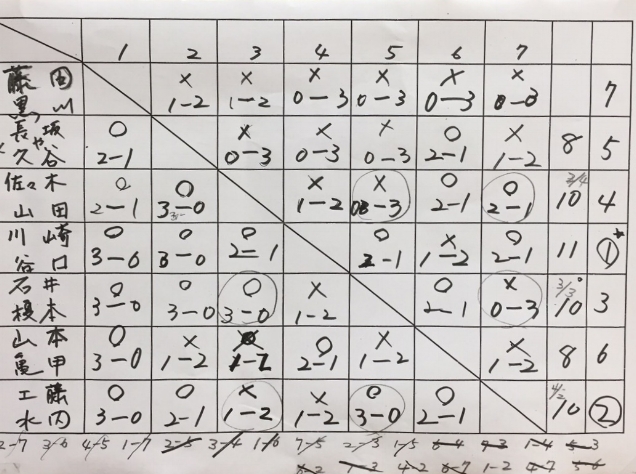 1 2 3 4 5 6 7
藤田 × 1-2 × 1-2 × 0-3 × 0-3 × 0-3 × 0-3 7
黒川
長坂 ○ 2-1 × 0-3 × 0-3 × 0-3 ○ 2-1 × 1-2 8 5
久谷
佐々木 ○ 2-1 ○ 3-0 × 1-2 × 0-3 ○ 2-1 ○ 2-1 3/4 10 4
山田
川崎 ○ 3-0 ○ 3-0 ○ 2-1 ○ 2-1 × 1-2 ○ 2-1 11 ①
谷口
石井 ○ 3-0 ○ 3-0 ○ 3-0 × 1-2 ○ 2-1 × 0-3 3/3 10 3
榎本
山本 ○ 3-0 × 1-2 × 1-2 ○ 2-1 × 1-2 × 1-2 8 6
亀甲
工藤 ○ 3-0 ○ 2-1 × 1-2 × 1-2 ○ 3-0 ○ 2-1 4/2 10 ②
水内
2-7 3-6 4-5 1-7 2-5 3-4 1-6 7-5 2-3 1-5 6-4 1-4
4-2 6-7 1-2 4-7 5-6